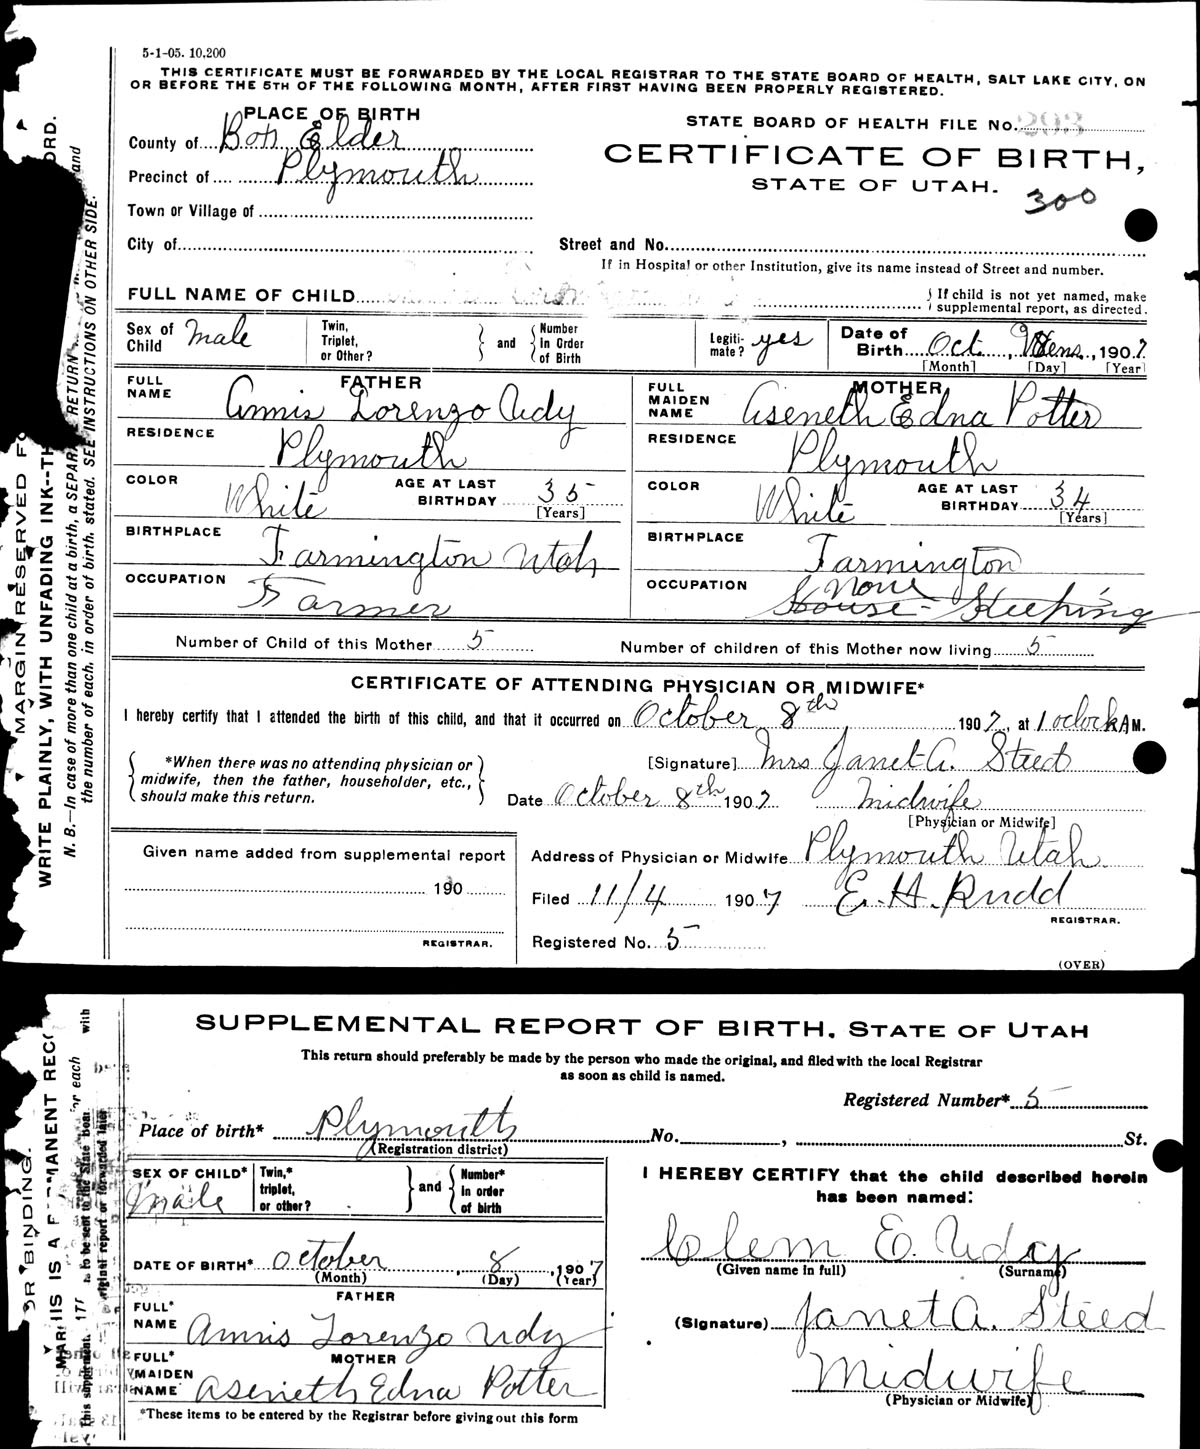 5-1-05. 10,200
THIS CERTIFICATE MUST BE FORWARDED BY THE LOCAL REGISTRAR TO THE STATE BOARD OF HEALTH, SALT LAKE CITY, ON
OR BEFORE THE 5TH OF THE FOLLOWING MONTH, AFTER FIRST HAVING BEEN PROPERLY REGISTERED.
PLACE OF BIRTH
STATE BOARD OF HEALTH FILE No. 293
County of Box Elder
CERTIFICATE OF BIRTH,
Precinct of Plymouth
STATE OF UTAH.
300
Town or Village of
City of Street and No.
If in Hospital or other Institution, give its name instead of Street and number.
FULL NAME OF CHILD
If child is not yet named, make
supplemental report, as directed.
Sex of Child Male Twin, Triplet, or Other? and Number In Order of Birth Legiti-mate? yes Date of Birth Oct. 1907
[Month] [Day] [Year]
FATHER
FULL NAME Annis Lorenzo Udy
RESIDENCE Plymouth
COLOR White AGE AT LAST BIRTHDAY 35
[Years]
BIRTHPLACE Farmington Utah
OCCUPATION Farmer
MOTHER
FULL MAIDEN NAME Aseneth Edna Potter
RESIDENCE Plymouth
COLOR White AGE AT LAST BIRTHDAY 34
[Years]
BIRTHPLACE Farmington
OCCUPATION none
House-Keeping
Number of Child of this Mother 5 Number of children of this Mother now living 5
CERTIFICATE OF ATTENDING PHYSICIAN OR MIDWIFE*
I hereby certify that I attended the birth of this child, and that it occurred on October 8th 1907, at 1 oclock A M.
*When there was no attending physician or
midwife, then the father, householder, etc.,
should make this return.
[Signature] Mrs Janet A. Steed
Date October 8th 1907 Midwife
[Physician or Midwife]
Given name added from supplemental report
190
REGISTRAR.
Address of Physician or Midwife Plymouth Utah.
Filed 11/4 1907 E. H. Rudd
REGISTRAR.
Registered No. 5
(OVER)
MARGIN RESERVED FO
WRITE PLAINLY, WITH UNFADING INK--TH ORD.
N. B.—In case of more than one child at a birth, a SEPARA RETURN and
the number of each, in order of birth, stated. SEE INSTRUCTIONS ON OTHER SIDE.
SUPPLEMENTAL REPORT OF BIRTH, STATE OF UTAH
This return should preferably be made by the person who made the original, and filed with the local Registrar
as soon as child is named.
Registered Number* 5
Place of birth* Plymouth No. , St.
(Registration district)
SEX OF CHILD* Male Twin,* triplet, or other? and Number* In order of birth
DATE OF BIRTH* October, 8, 1907
(Month) (Day) (Year)
FATHER
FULL* NAME Annis Lorenzo Udy
MOTHER
FULL* MAIDEN NAME Aseneth Edna Potter
*These items to be entered by the Registrar before giving out this form
I HEREBY CERTIFY that the child described herein
has been named:
Clem E. Udy
(Given name in full) (Surname)
(Signature) Janet A. Steed
Midwife
(Physician or Midwife)
OR BINDING.